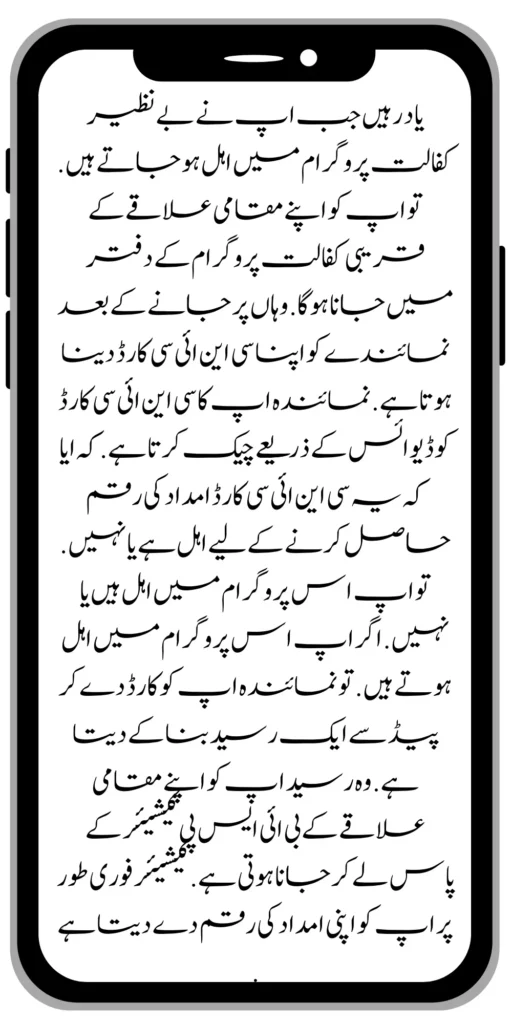 یاد رہیں جب اپ نے بے نظیر
کفالت پروگرام میں اہل ہو جاتے ہیں.
تو اپ کو اپنے مقامی علاقے کے
قریبی کفالت پروگرام کے دفتر
میں جانا ہوگا. وہاں پر جانے کے بعد
نمائندے کو اپنا سی این ائی سی کارڈ دینا
ہوتا ہے. نمائندہ اپ کا سی این ائی سی کارڈ
کو ڈیوائس کے ذریعے چیک کرتا ہے. کہ ایا
کہ یہ سی این ائی سی کارڈ امداد کی رقم
حاصل کرنے کے لیے اہل ہے یا نہیں.
تو اپ اس پروگرام میں اہل ہیں یا
نہیں. اگر اپ اس پروگرام میں اہل
ہوتے ہیں. تو نمائندہ اپ کو کارڈ دے کر
پیڈ سے ایک رسید بنا کے دیتا
ہے. وہ رسید اپ کو اپنے مقامی
علاقے کے بی ائی ایس پی کیشیئر کے
پاس لے کر جانا ہوتی ہے. کیشیئر فوری طور
پر اپ کو اپنی امداد کی رقم دے دیتا ہے
.